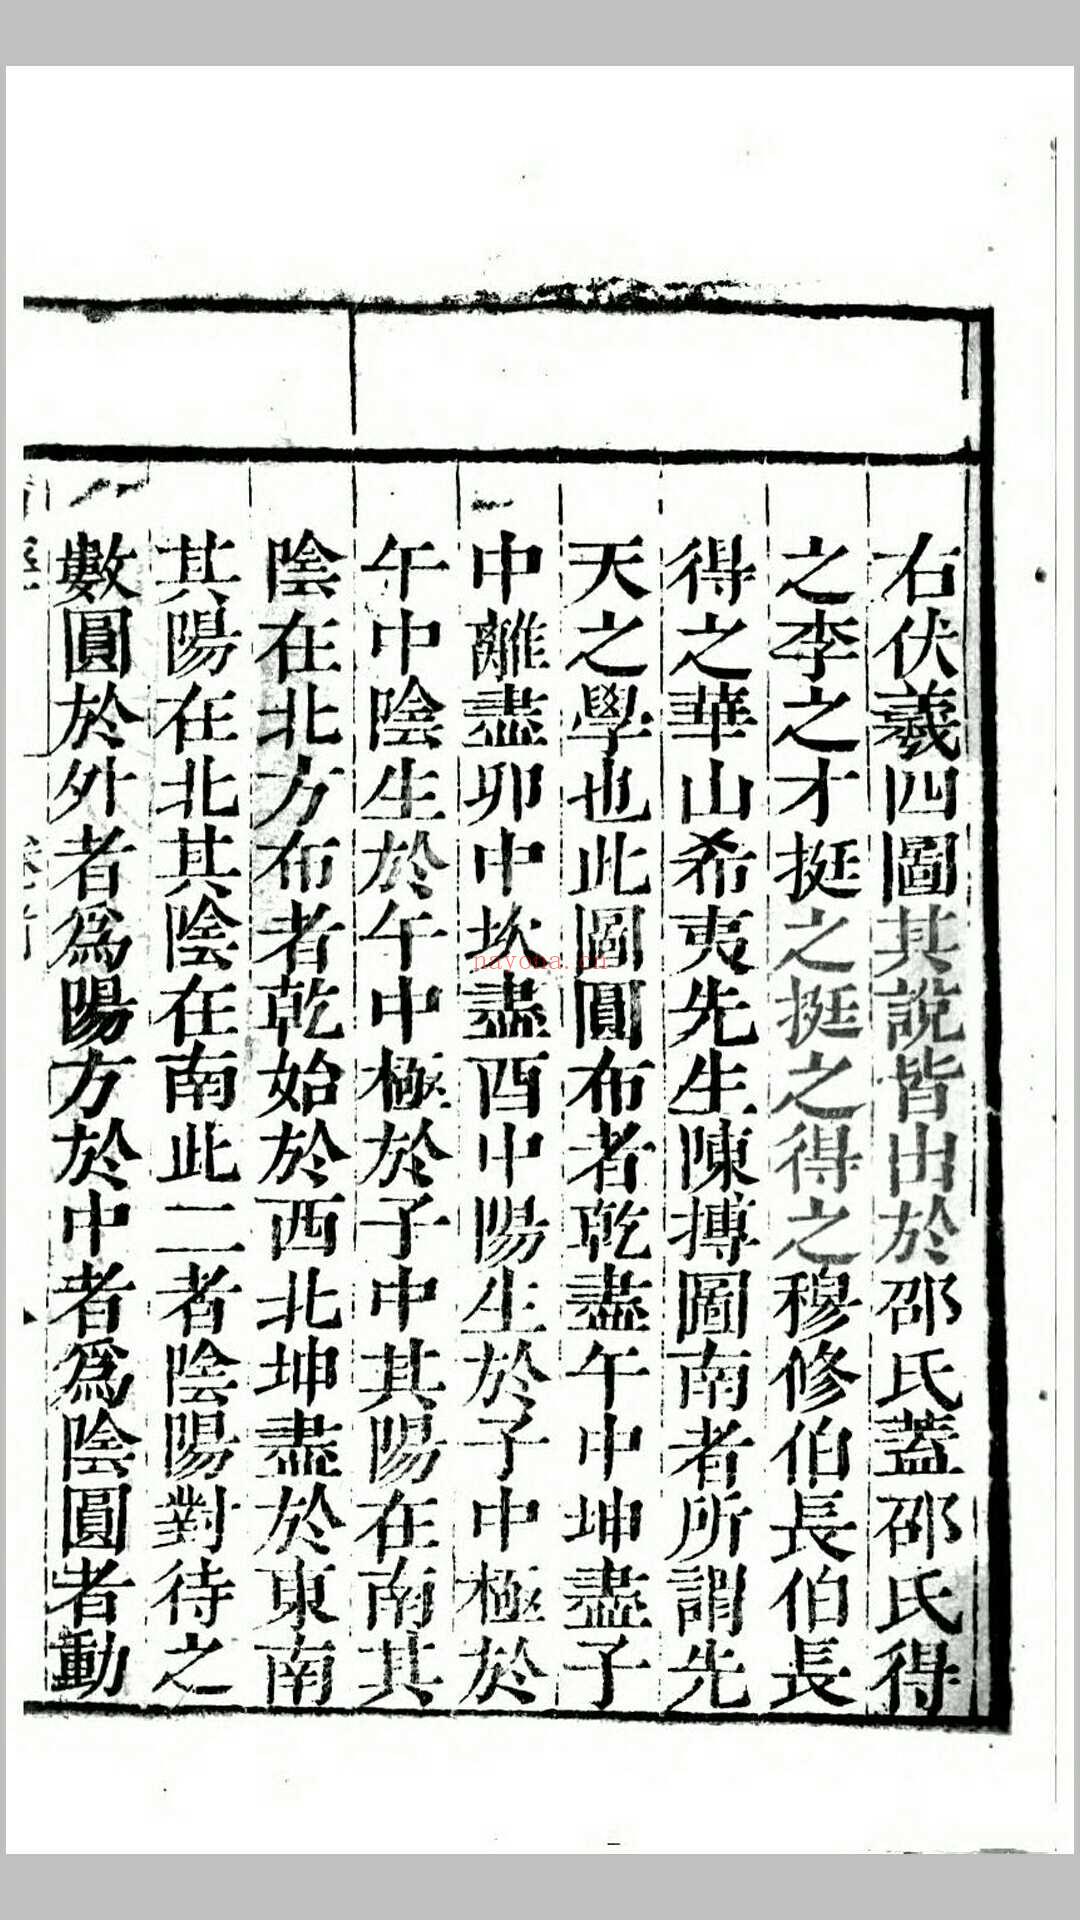 右伏羲四圖其說皆由於邵氏蓋邵氏得
之李之才挺之挺之得之穆修伯長伯長
得之華山希夷先生陳摶圖南者所謂先
天之學也此圖圓布者乾盡午中坤盡子
中離盡卯中坎盡酉中陽生於子中極於
午中陰生於午中極於子中其陽在南其
陰在北方布者乾始於西北坤盡於東南
其陽在北其陰在南此二者陰陽對待之
數圓於外者爲陽方於中者爲陰圓者動
nayona.cn